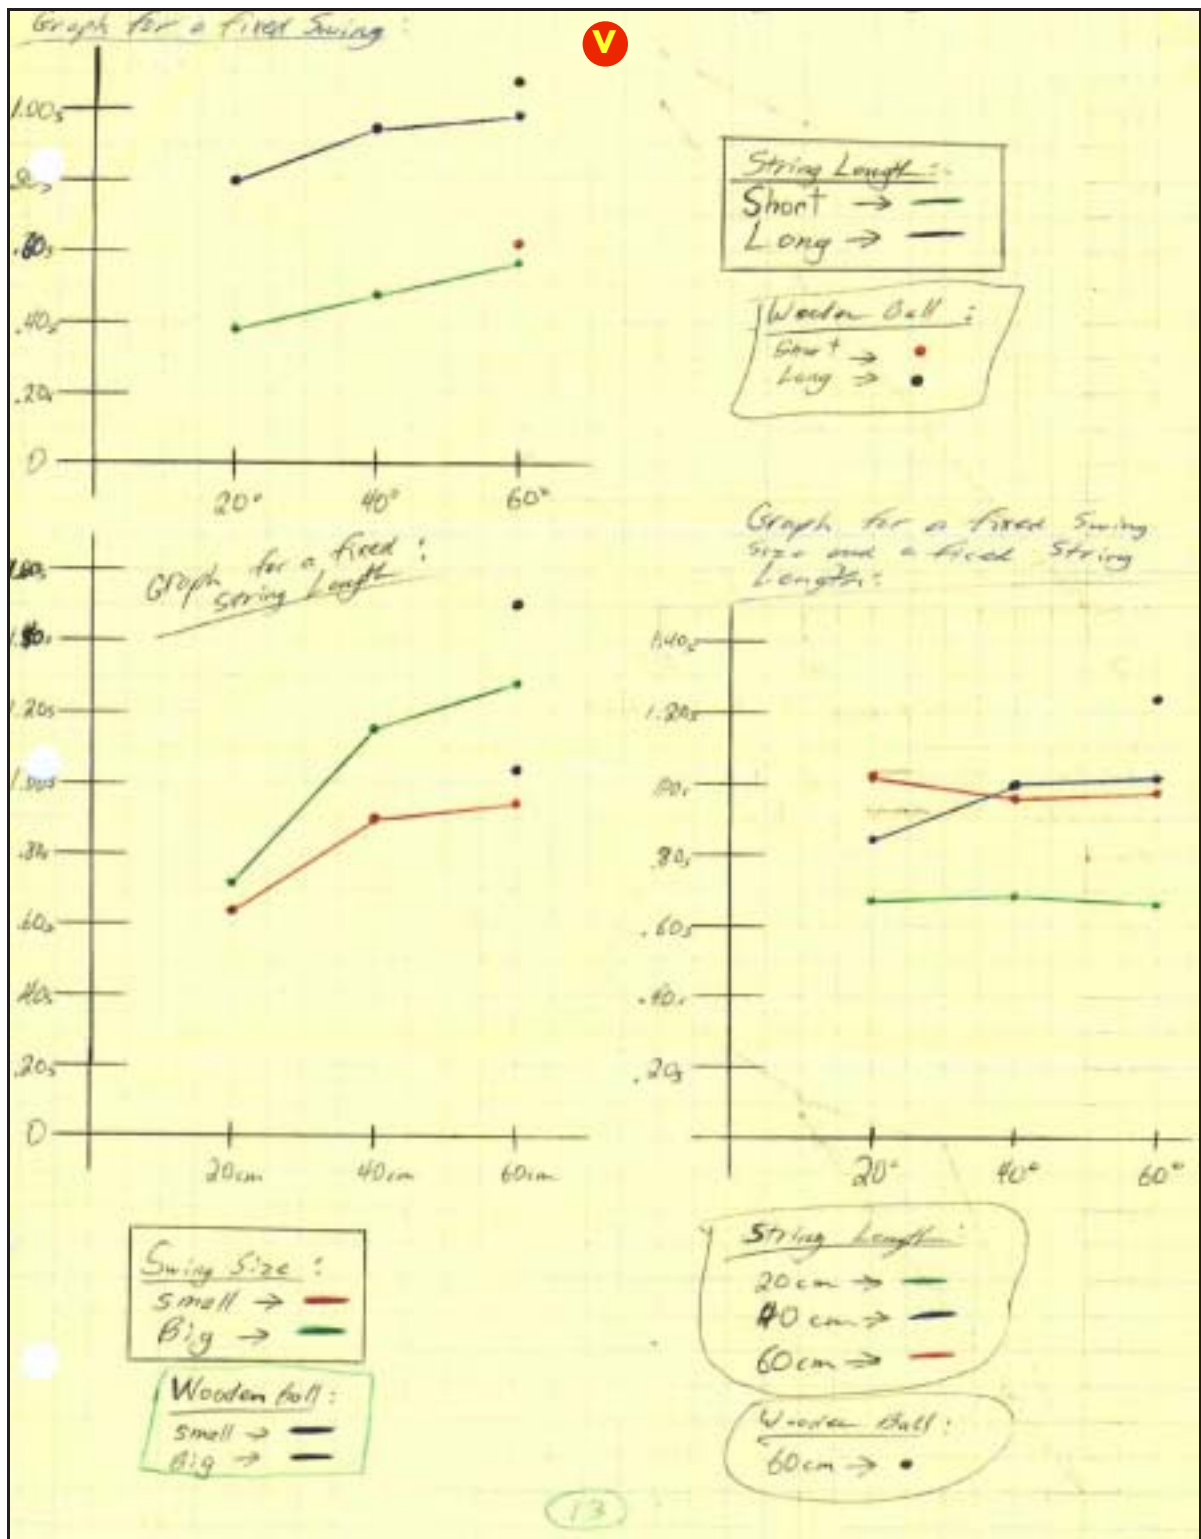 Graph for a fixed Swing:
V
1.00s
.80s
.60s
.40s
.20s
0
20° 40° 60°
String Length:
Short →
Long →
Wooden Ball:
Short →
Long →
Graph for a fixed
string Length:
1.20s
1.00s
.80s
.60s
.40s
.20s
0
20cm 40cm 60cm
Swing Size:
small →
Big →
Wooden ball:
small →
Big →
Graph for a fixed Swing
size and a fixed String
Length:
1.40s
1.20s
.80s
.60s
.40s
.20s
20° 40° 60°
String Length:
20cm →
40cm →
60cm →
Wooden Ball:
60cm →
13